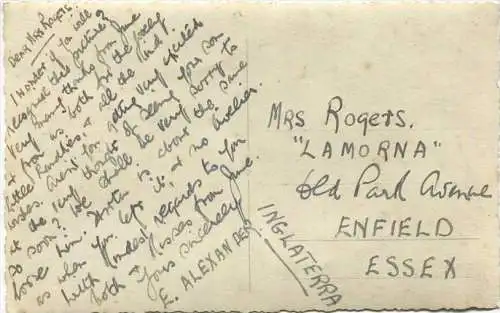 Dear Mrs Rogers.
I wonder if you will
recognise this picture?
Very many thanks from June
& from us both for the lovely
little hankies, & all the kind
wishes. Aren't you getting very excited
at the very thought of seeing your son
so soon? We shall be very sorry to
lose him. Austin is about the same
as when you left it, & no livelier.
With kindest regards to you
both & kisses from June.
Yours sincerely
E. ALEXANDER.
MRS Rogers.
"LAMORNA"
Old Park Avenue
ENFIELD
ESSEX
INGLATERRA